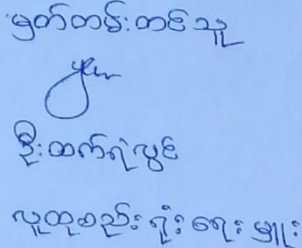 မှတ်တမ်းတင်သူ
ဦးထက်ရံလွင်
လူထုစည်းရုံးရေးမှူး